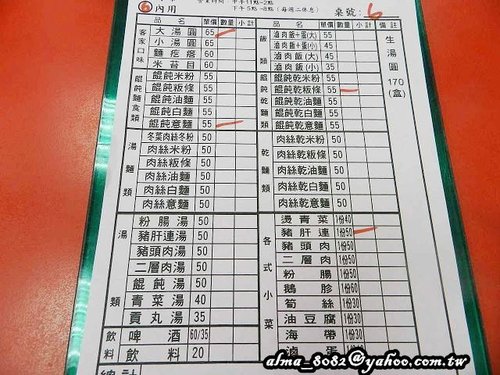 營業時間：中午11點-2點
下午5點-8點（每週二休息）
⑥ 內用 桌號：6
品名 單價 數量 小計
客家口味
大湯圓 65
小湯圓 65
麵疙瘩 60
米苔目 60
餛飩麵食類
餛飩米粉 55
餛飩粄條 55
餛飩油麵 55
餛飩白麵 55
餛飩意麵 55
湯麵類
冬菜肉絲冬粉 50
肉絲米粉 50
肉絲粄條 50
肉絲油麵 50
肉絲白麵 50
肉絲意麵 50
湯類
粉腸湯 50
豬肝連湯 50
豬頭肉湯 50
二層肉湯 50
餛飩湯 50
青菜湯 40
貢丸湯 35
飲料
啤酒 60/35
飲料 20
總計
品名 單價 數量 小計 備註
飯類
滷肉飯+蛋(大) 55
滷肉飯+蛋(小) 45
滷肉飯(大) 45
滷肉飯(小) 35
餛飩乾麵類
餛飩乾米粉 55
餛飩乾粄條 55
餛飩乾油麵 55
餛飩乾白麵 55
餛飩乾意麵 55
乾麵類
肉絲乾米粉 50
肉絲乾粄條 50
肉絲乾油麵 50
肉絲乾白麵 50
肉絲乾意麵 50
各式小菜
燙青菜 1份40
豬肝連 1份50
豬頭肉 1份50
二層肉 1份50
粉腸 1份50
鵝胗 1份60
筍絲 1份30
油豆腐 1份30
海帶 1份30
滷蛋
生湯圓170(盒)
alma_8082@yahoo.com.tw